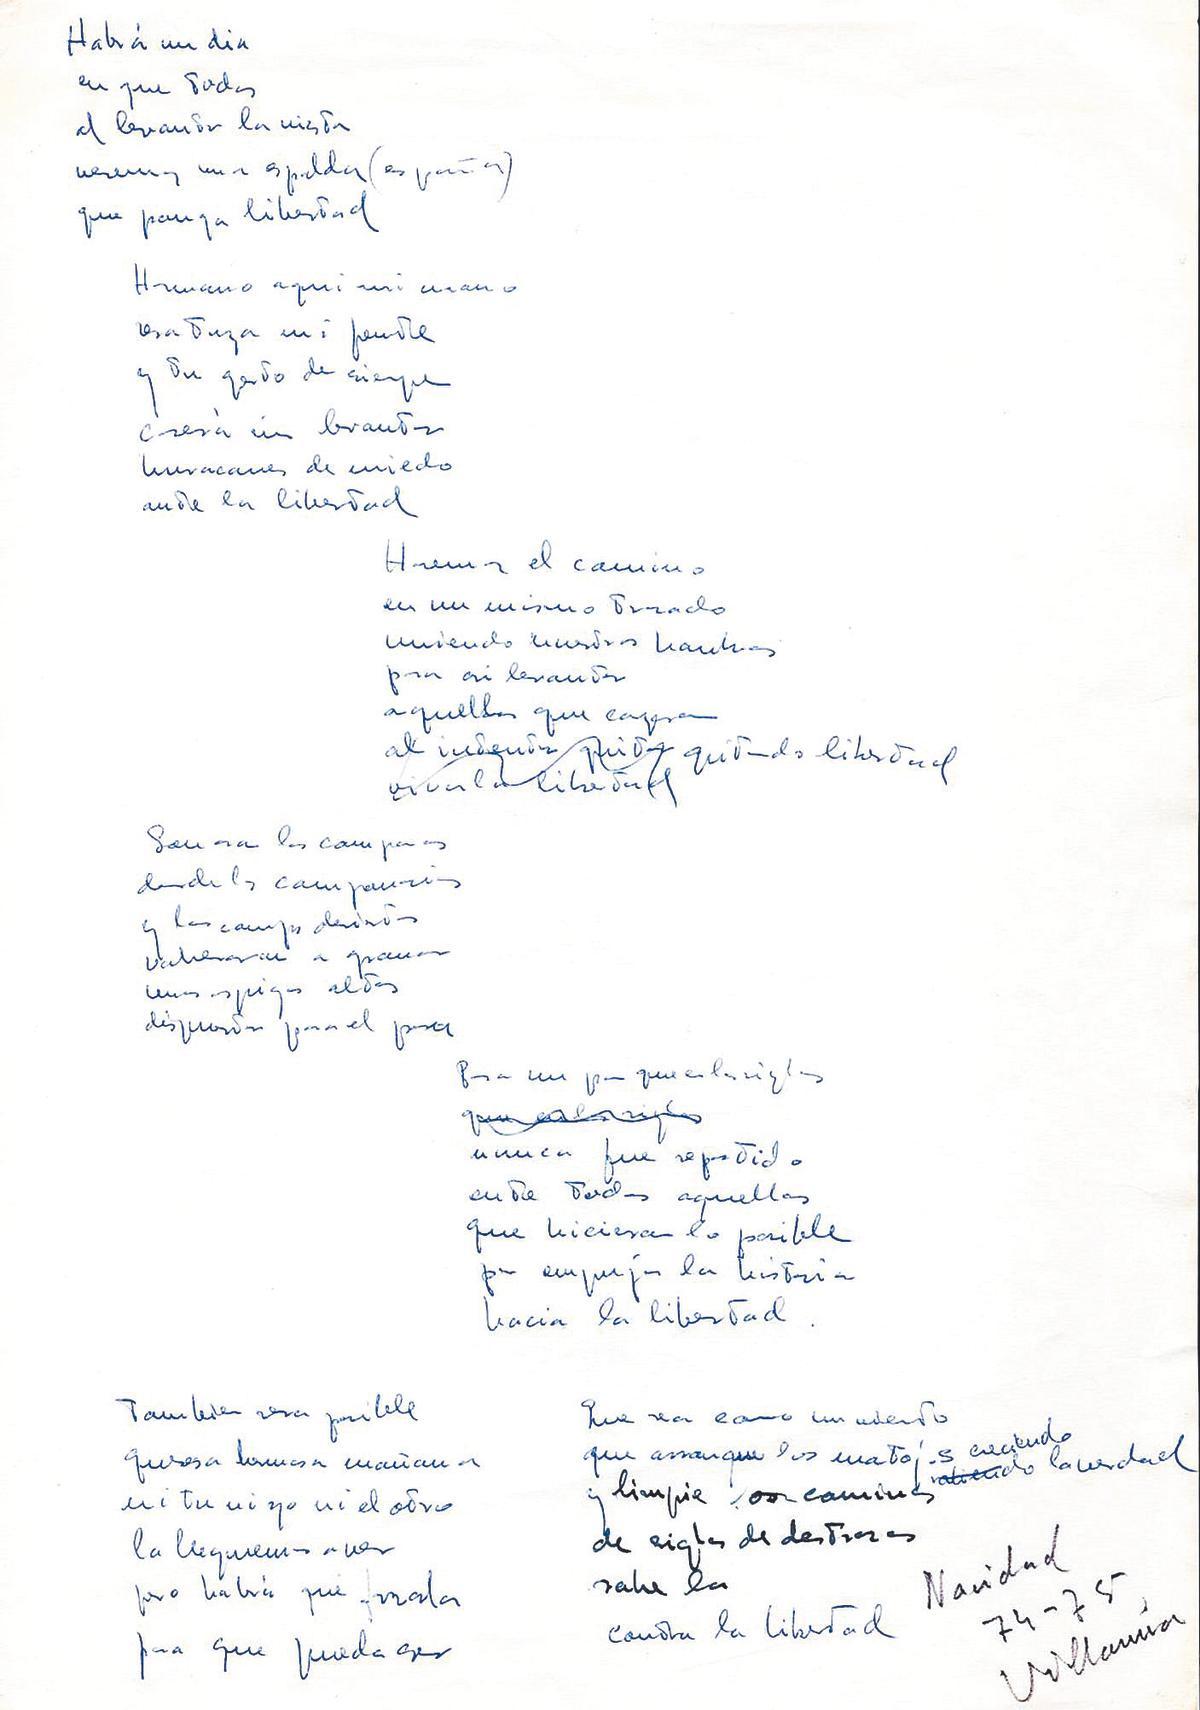 Habrá un dia
en que todos
al levantar la vista
veremos una espalda (españa)
que ponga libertad
Hermano aqui mi mano
sera tuya mi frente
y tu gesto de siempre
caerá sin levantar
huracanes de miedo
ante la libertad
Haremos el camino
en un mismo trazado
uniendo nuestros hombros
para asi levantar
aquellos que cayeron
al intentar quitar gritando libertad
viva la libertad
Sonaran las campanas
desde los campanarios
y los campos desiertos
volveran a granar
unas espigas altas
dispuestas para el pan
Para un pan que en los siglos
que en los siglos
nunca fue repartido
entre todos aquellos
que hicieron lo posible
por empujar la historia
hacia la libertad.
Tambien sera posible
que esa hermosa mañana
ni tu ni yo ni el otro
la lleguemos a ver
pero habrá que forzarla
para que pueda ser
Que sea como un viento
que arranque los matojos creciendo
la verdad
y limpie los caminos
de siglos de destrozos
sobre la
contra la libertad
Navidad
74-75